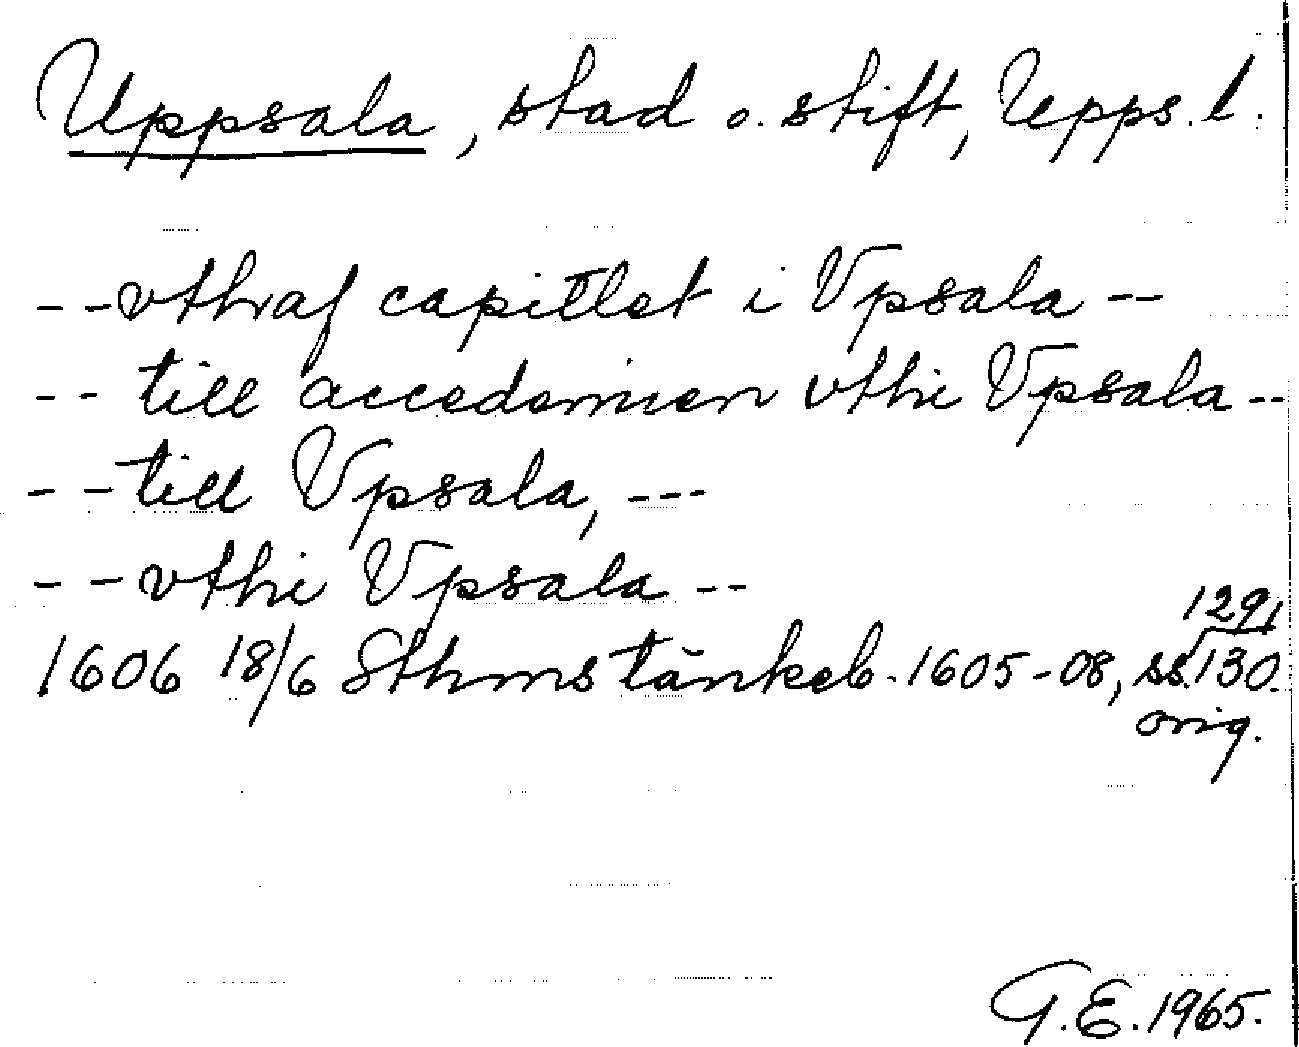 Uppsala, stad o. stift, Upps. l.
-- vthaf capitlet i Vpsala --
-- till accedemien vthi Vpsala --
-- till Vpsala, ---
-- vthi Vpsala --
129,
1606 18/6 Sthms tänkeb. 1605-08, ss. 130.
orig.
G.E. 1965.